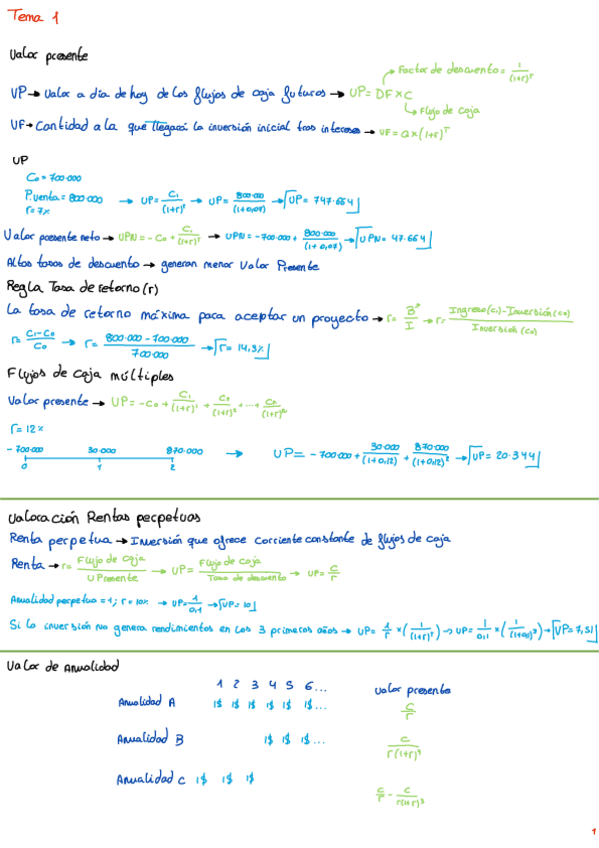 Tema 1
Valor presente
Factor de descuento = 1/(1+r)^T
VP → Valor a día de hoy de los flujos de caja futuros → VP = DF × C
Flujo de caja
VF → Cantidad a la que llegará la inversión inicial tras intereses → VF = Q × (1+r)^T
VP
C₀ = 700.000
P. venta = 800.000 → VP = C₁/(1+r)^T → VP = 800.000/(1+0,07) → VP = 747.664
r = 7%
Valor presente neto → VPN = -C₀ + C₁/(1+r)^T → VPN = -700.000 + 800.000/(1+0,07) → VPN = 47.664
Altas tasas de descuento → generan menor Valor Presente
Regla Tasa de retorno (r)
La tasa de retorno máxima para aceptar un proyecto → r = Bº/I → r = Ingreso(C₁) - Inversión(C₀)/Inversión(C₀)
r = C₁-C₀/C₀ → r = 800.000 - 700.000/700.000 → r = 14,3%
Flujos de caja múltiples
Valor presente → VP = -C₀ + C₁/(1+r)^1 + C₂/(1+r)^2 + ... +
r = 12%
-700.000 30.000 870.000 → VP = -700.000 + 30.000/(1+0,12) + 870.000/(1+0,12)² → VP = 20.344
0 1 2
Valoración Rentas perpetuas
Renta perpetua → Inversión que ofrece corriente constante de flujos de caja
Renta → r = Flujo de caja/V Presente → VP = Flujo de caja/Tasa de descuento → VP = C/r
Anualidad perpetua = 1; r = 10% → VP = 1/0,1 → VP = 10
Si la inversión no genera rendimientos en los 3 primeros años → VP = 1/r × (1/(1+r)^T) → VP = 1/0,1 × (1/(1+0,1)³) → VP = 7,51
Valor de Anualidad
1 2 3 4 5 6 ... Valor presente
Anualidad A 1$ 1$ 1$ 1$ 1$ 1$ ... C/r
Anualidad B 1$ 1$ 1$ ... C/r(1+r)³
Anualidad C 1$ 1$ 1$ C/r - C/r(1+r)³
1